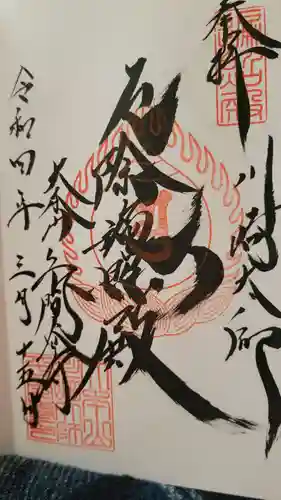 奉拝
川崎大師
厄除遍照殿
大本山平間寺
令和四年三月十五日